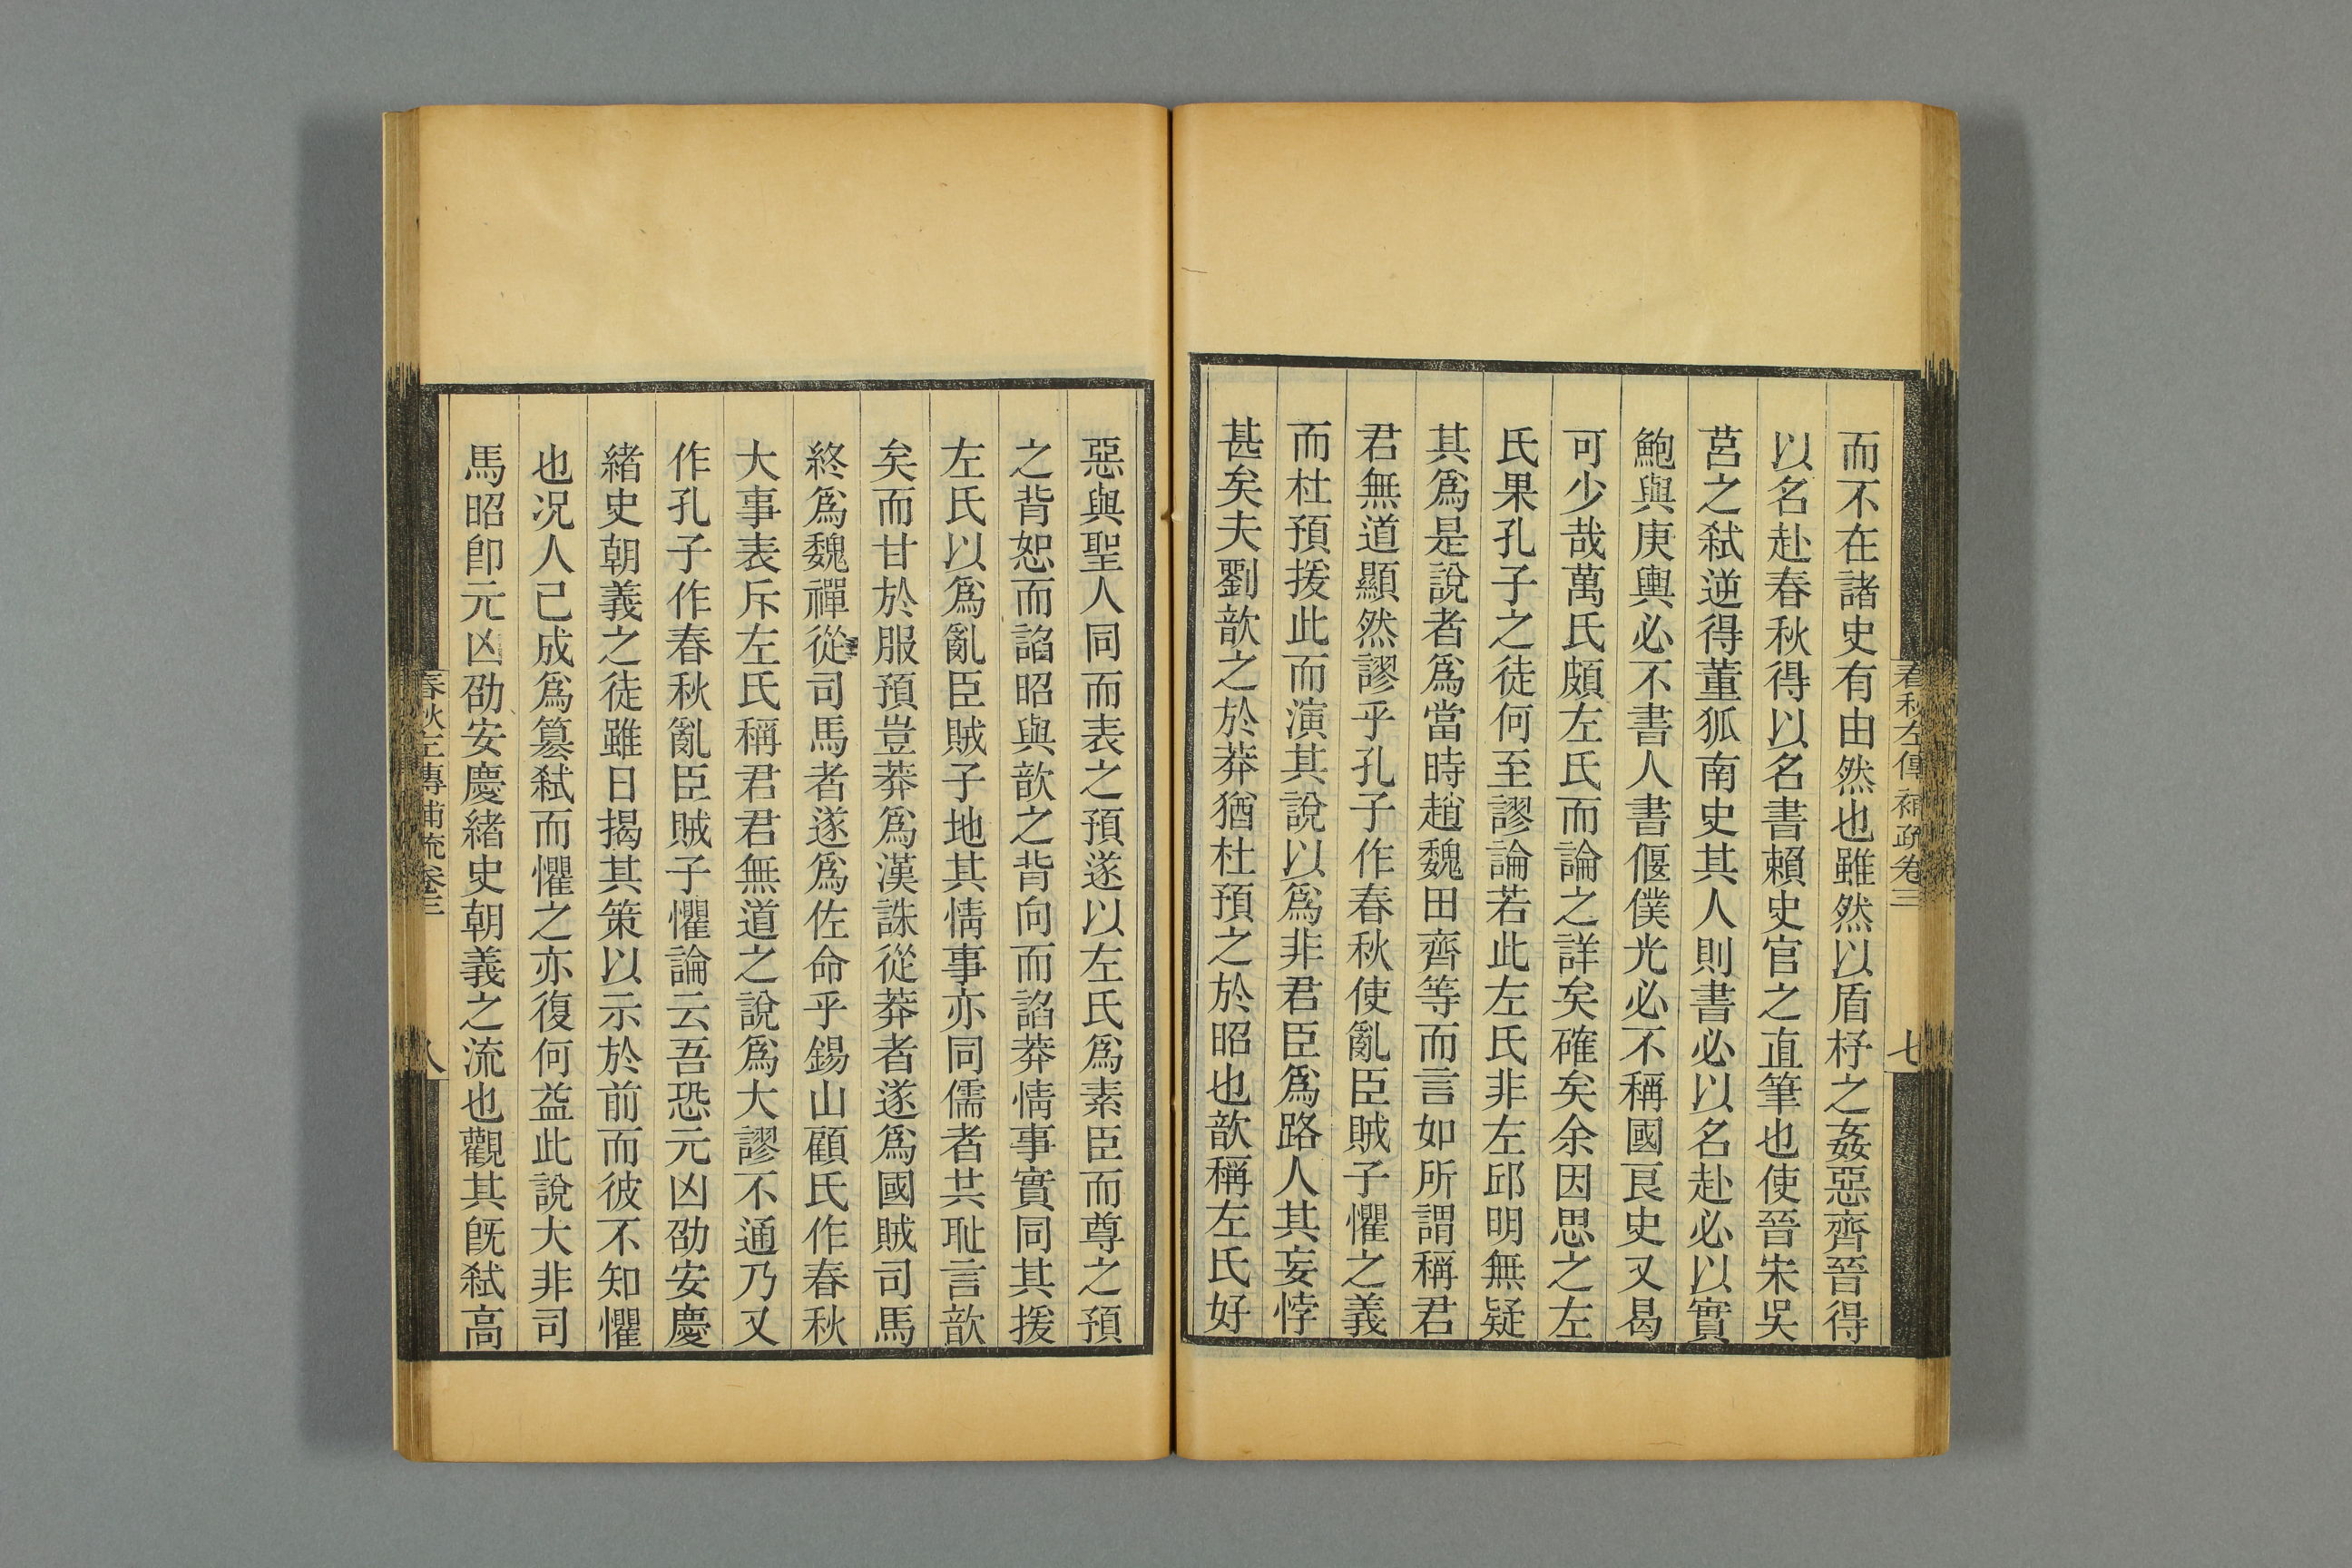 春秋左傳補疏卷三
七
而不在諸史有由然也雖然以盾杼之姦惡齊晉得
以名赴春秋得以名書賴史官之直筆也使晉宋吳
莒之弑逆得董狐南史其人則書必以名赴必以實
鮑與庚輿必不書人書偃僕光必不稱國良史又曷
可少哉萬氏頗左氏而論之詳矣確矣余因思之左
氏果孔子之徒何至謬論若此左氏非左邱明無疑
其爲是說者爲當時趙魏田齊等而言如所謂稱君
君無道顯然謬乎孔子作春秋使亂臣賊子懼之義
而杜預援此而演其說以爲非君臣爲路人其妄悖
甚矣夫劉歆之於莽猶杜預之於昭也歆稱左氏好
惡與聖人同而表之預遂以左氏爲素臣而尊之預
之背恕而諂昭與歆之背向而諂莽情事實同其援
左氏以爲亂臣賊子地其情事亦同儒者共恥言歆
矣而甘於服預豈莽爲漢誅從莽者遂爲國賊司馬
終爲魏禪從司馬者遂爲佐命乎錫山顧氏作春秋
大事表斥左氏稱君君無道之說爲大謬不通乃又
作孔子作春秋亂臣賊子懼論云吾恐元凶劭安慶
緒史朝義之徒雖日揭其策以示於前而彼不知懼
也况人已成爲簒弑而懼之亦復何益此說大非司
馬昭卽元凶劭安慶緒史朝義之流也觀其旣弑高
春秋左傳補疏卷三
八